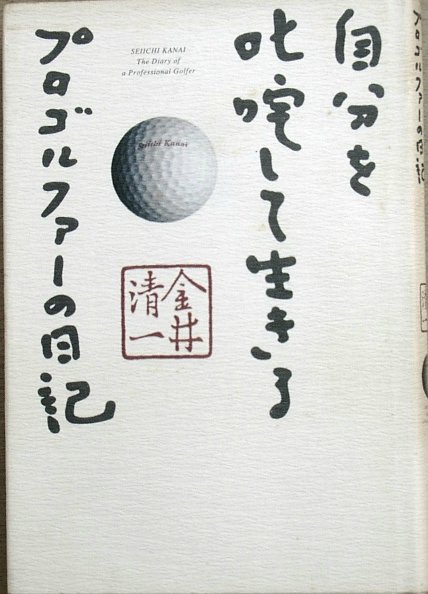 自分を
叱咤して生きる
プロゴルファーの日記
SEIICHI KANAI
The Diary of
a Professional Golfer
Seiichi Kanai
金井
清一
プロゴルファーの日記
清